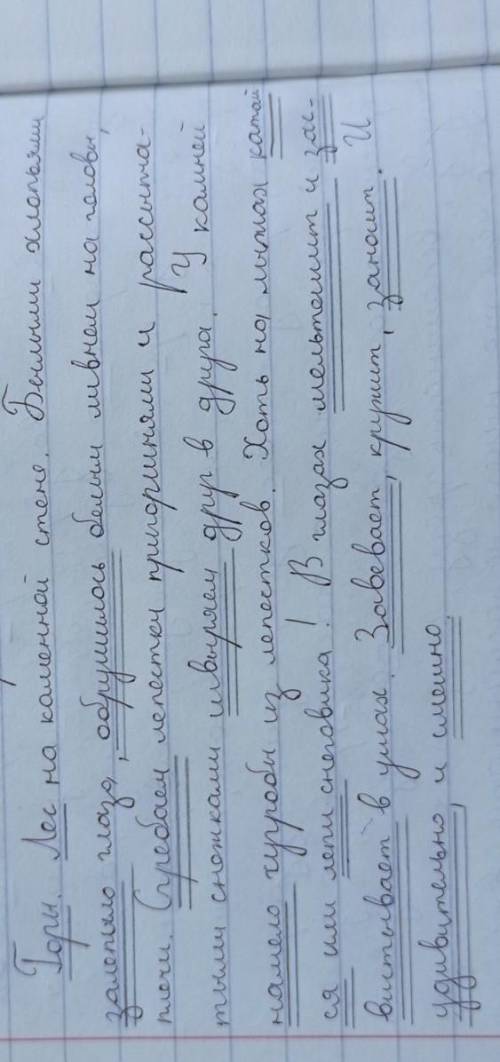 Горы. Лес на каменной стене. Белыми хлопьями
залепило глаза, обрушилось белым ливнем на головы,
плечи. Сгребаем лепестки пригоршнями и рассыпа-
тыми снежками швыряем друг в друга. У камней
намело сугробы из лепестков. Хоть на лыжах катай
ся или лепи снеговика! В глазах мельтешит и зас-
вистывает в ушах. Завевает, кружит, заносит. И
удивительно, и смешно